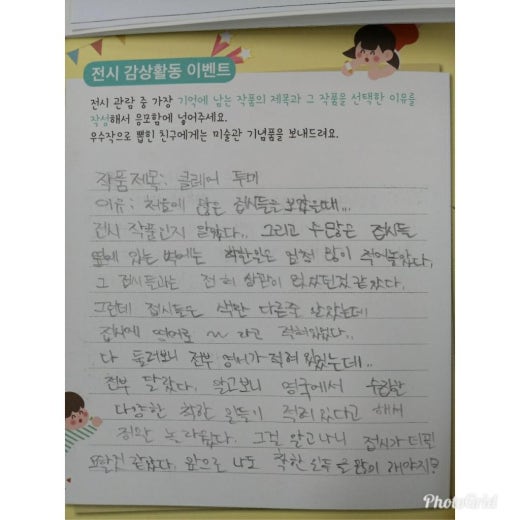 전시 감상활동 이벤트
전시 관람 중 가장 기억에 남는 작품의 제목과 그 작품을 선택한 이유를
작성해서 응모함에 넣어주세요.
우수작으로 뽑힌 친구에게는 미술관 기념품을 보내드려요.
작품제목: 클레어 투미
이유: 처음에 많은 접시들을 보았을때...
전시 작품인지 알았다.. 그리고 수많은 접시들
옆에 있는 벽에는 착한일은 엄청 많이 적어놓았다.
그 접시들과는 전혀 상관이 없었던것 같았다.
그런데 접시들은 색만 다른줄 알았는데
접시에 영어로 ~~ 라고 적혀있었다..
다 둘러보니 전부 영어가 적혀 있었는데..
전부 달랐다. 알고보니 영국에서 수많은
다양한 착한 일들이 적혀있다고 해서
정말 놀라웠다. 그걸 알고나니 접시가 더
같았다. 앞으로 나도 착한 일을 많이 해야지?
PhotoGrid